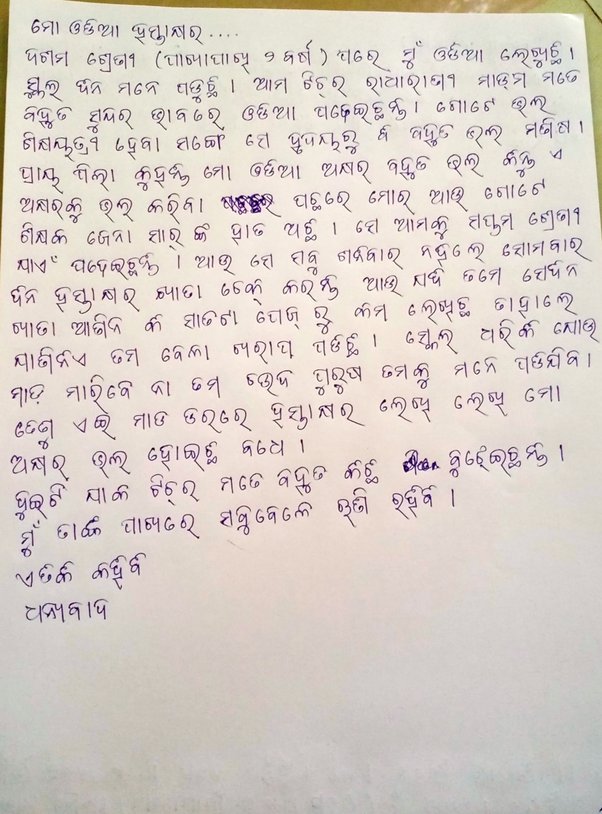 ମୋ ଓଡିଆ ହସ୍ତାକ୍ଷର....
ଦଶମ ଶ୍ରେଣୀ (ପାଖାପାଖି ୨ ବର୍ଷ) ପରେ ମୁଁ ଓଡିଆ ଲେଖୁଛି।
ସ୍କୁଲ ଦିନ ମନେ ପଡୁଛି। ଆମ ଟିଚର ରାଧାରାଣୀ ମାଡ଼ମ ମତେ
ବହୁତ ସୁନ୍ଦର ଭାବରେ ଓଡିଆ ପଢେଇଛନ୍ତି। ଗୋଟେ ଭଲ
ଶିକ୍ଷୟତ୍ରୀ ହେବା ସଙ୍ଗେ ସେ ହୃଦୟରୁ ବି ବହୁତ ଭଲ ମଣିଷ।
ପ୍ରାୟ ପିଲା କୁହନ୍ତି ମୋ ଓଡିଆ ଅକ୍ଷର ବହୁତ ଭଲ କିନ୍ତୁ ଏ
ଅକ୍ଷରକୁ ଭଲ କରିବା ପଛରେ ମୋର ଆଉ ଗୋଟେ
ଶିକ୍ଷକ ଜେନା ସାର୍ ଙ୍କ ହାତ ଅଛି। ସେ ଆମକୁ ସପ୍ତମ ଶ୍ରେଣୀ
ଯାଏଁ ପଢେଇଛନ୍ତି। ଆଉ ସେ ସବୁ ଶନିବାର ନହଲେ ସୋମବାର
ଦିନ ହସ୍ତାକ୍ଷର ଖାତା ଚେକ୍ କରନ୍ତି ଆଉ ଯଦି ତମେ ସେଦିନ
ଖାତା ଆଣିନ କି ସାତଟା ପେଜ୍ ରୁ କମ ଲେଖିଛ ତାହାଲେ
ଯାଣିନିଏ ତମ ବେଳା ଖରାପ ପଡିଛି। ସ୍କେଲ ଧରିକି ଯୋଉ
ମାଡ଼ ମାରିବେ ନା ତମ ଚଉଦ ପୁରୁଷ ତମକୁ ମନେ ପଡିଯିବା।
ତେଣୁ ଏଇ ମାଡ ଡରରେ ହସ୍ତାକ୍ଷର ଲେଖି ଲେଖି ମୋ
ଅକ୍ଷର ଭଲ ହୋଇଛି ବୋଧେ।
ଦୁଇଟି ଯାକ ଟିଚର ମତେ ବହୁତ କିଛି ବୁଝେଇଛନ୍ତି।
ମୁଁ ତାଙ୍କ ପାଖରେ ସବୁବେଳେ ଋଣି ରହିବି।
ଏତିକି କହିବି
ଧନ୍ୟବାଦ